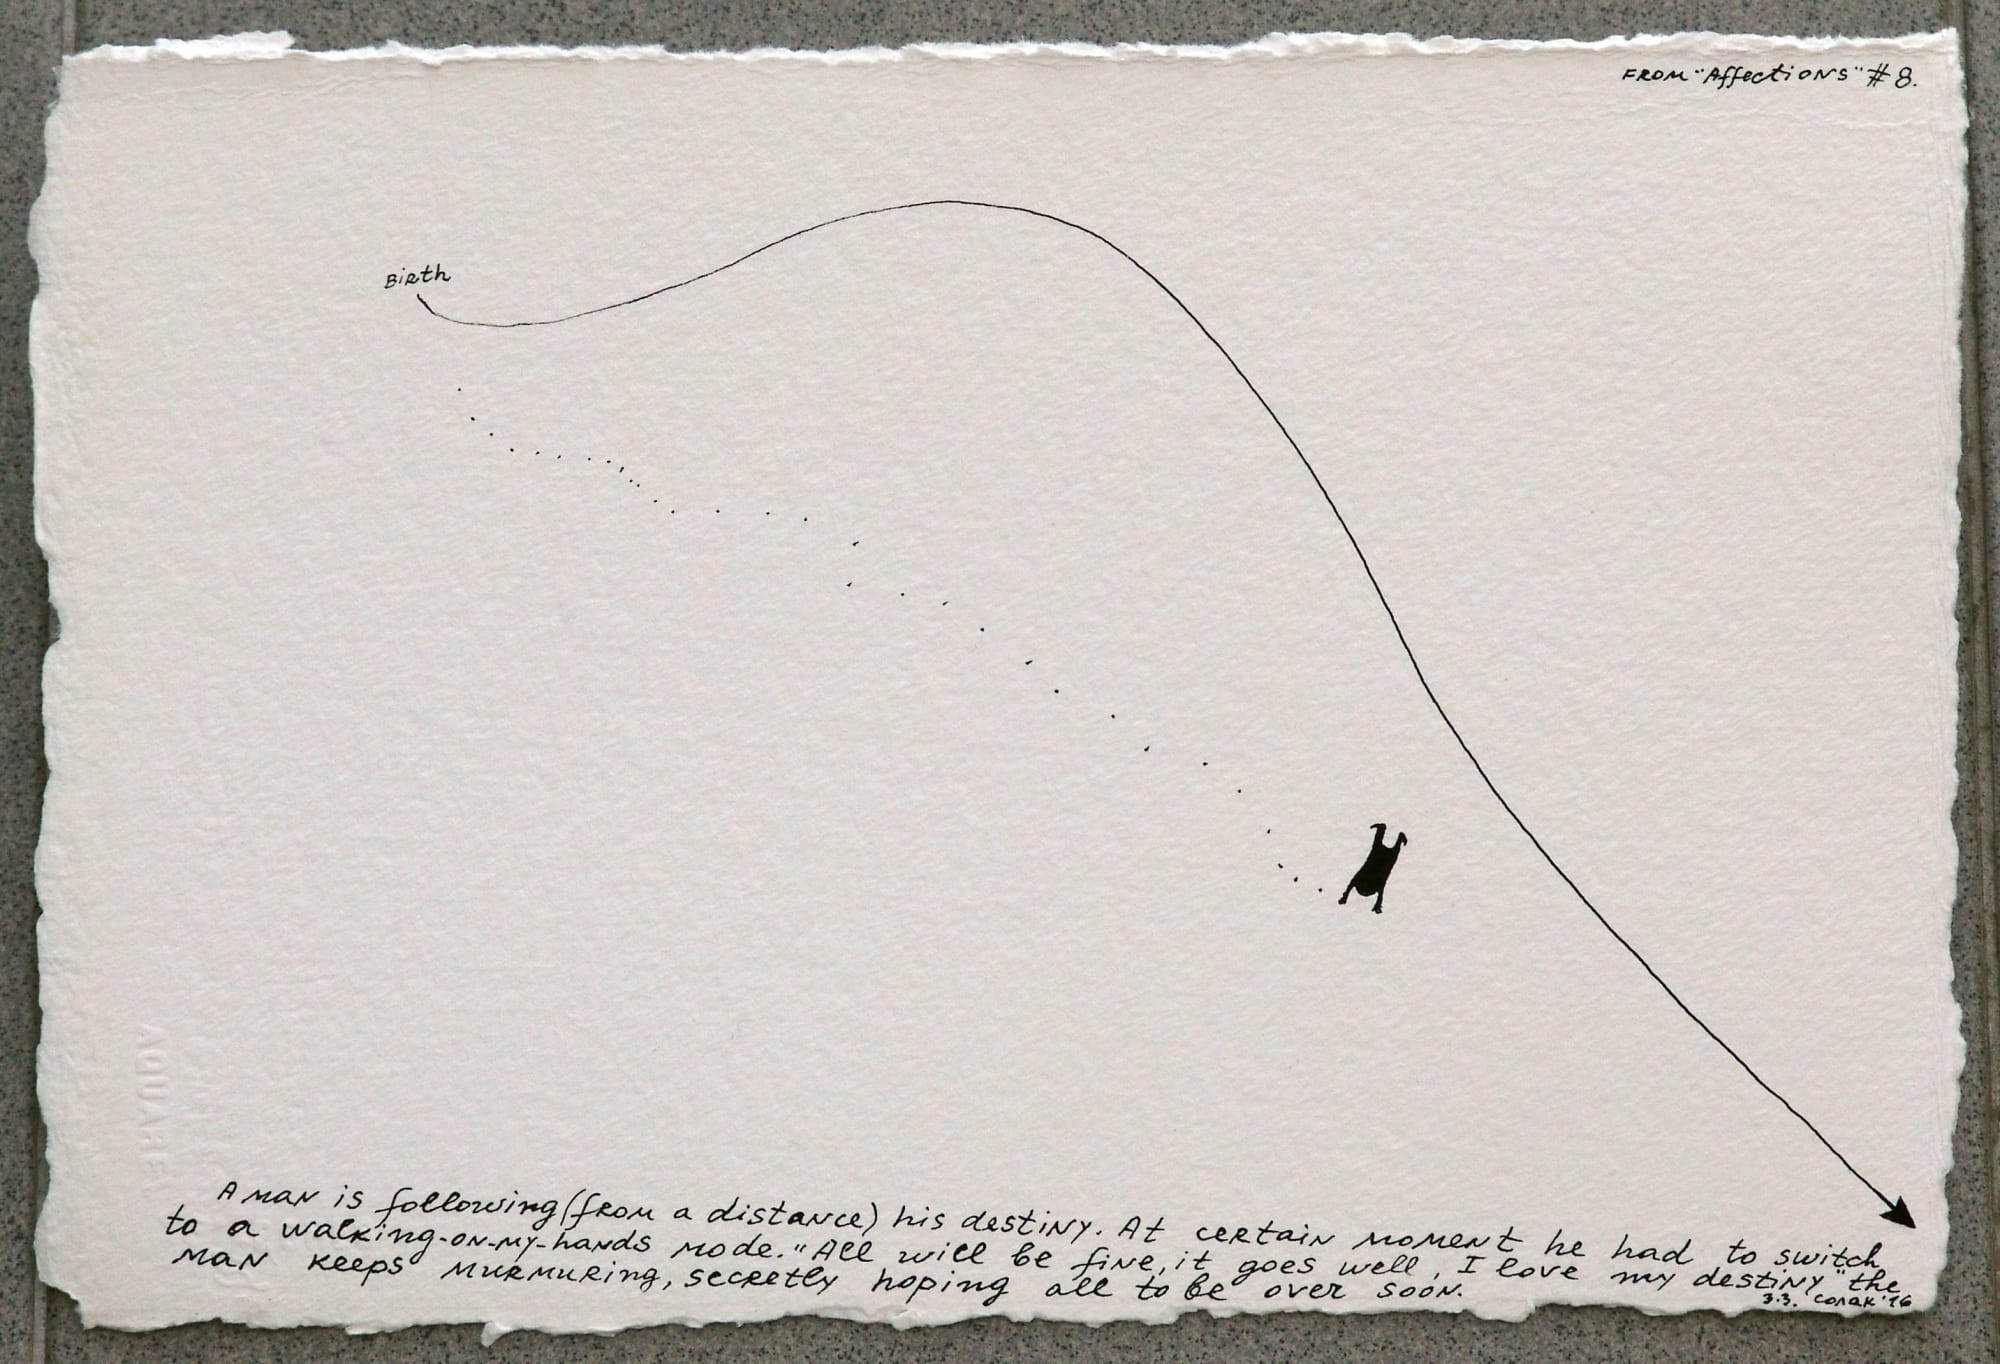 FROM "Affections" # 8.
Birth
A man is following (from a distance) his destiny. At certain moment he had to switch
to a walking-on-my-hands mode. "All will be fine, it goes well, I love my destiny" the
man keeps murmuring, secretly hoping all to be over soon.
AQUARE